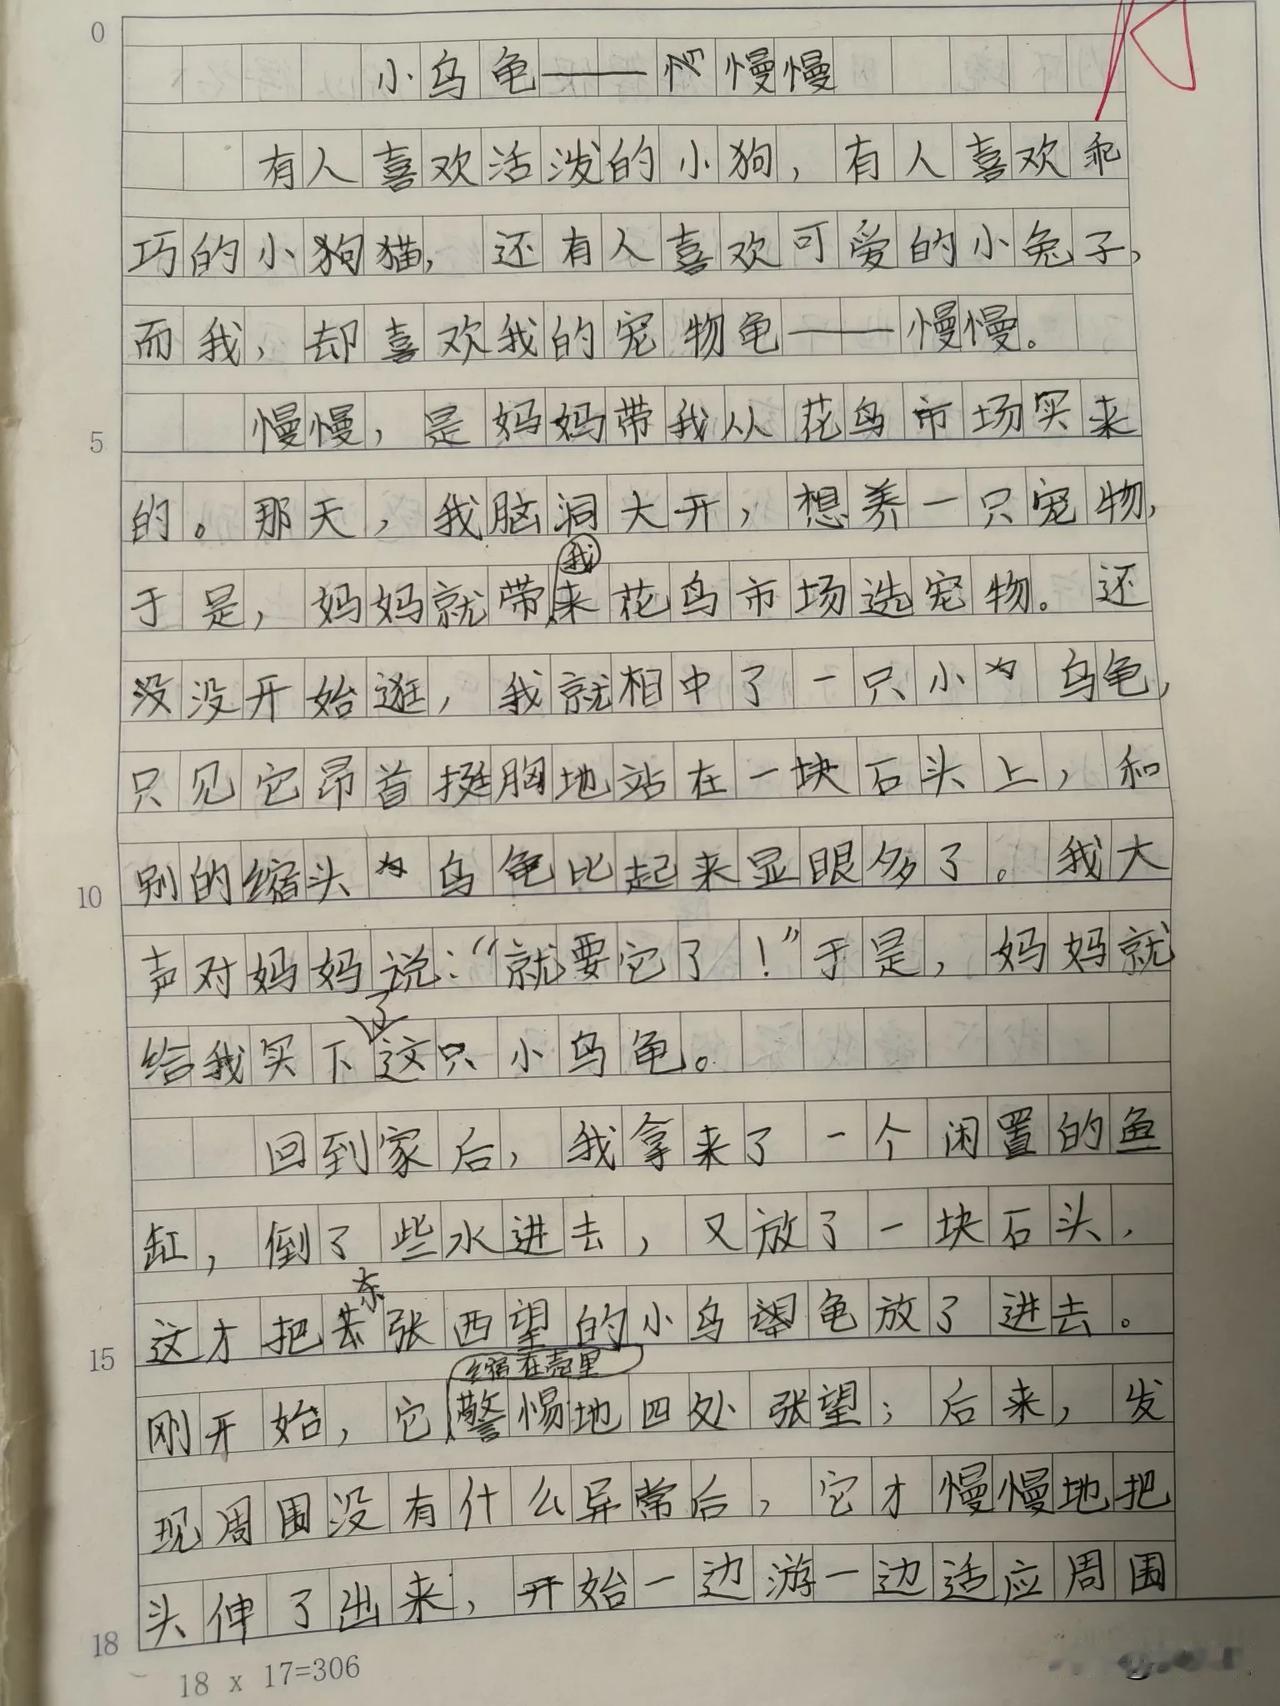 0
小乌龟——慢慢
有人喜欢活泼的小狗，有人喜欢乖
巧的小猫，还有人喜欢可爱的小兔子，
而我，却喜欢我的宠物龟——慢慢。
5
慢慢，是妈妈带我从花鸟市场买来
的。那天，我脑洞大开，想养一只宠物，
于是，妈妈就带我来花鸟市场选宠物。还
没开始逛，我就相中了一只小乌龟，
只见它昂首挺胸地站在一块石头上，和
10
别的缩头乌龟比起来显眼多了。我大
声对妈妈说：“就要它了！”于是，妈妈就
给我买下了这只小乌龟。
回到家后，我拿来了一个闲置的鱼
缸，倒了些水进去，又放了一块石头，
15
这才把东张西望的小乌龟放了进去。
刚开始，它缩在壳里警惕地四处张望；后来，发
现周围没有什么异常后，它才慢慢地把
18
头伸了出来，开始一边游一边适应周围
18 x 17=306